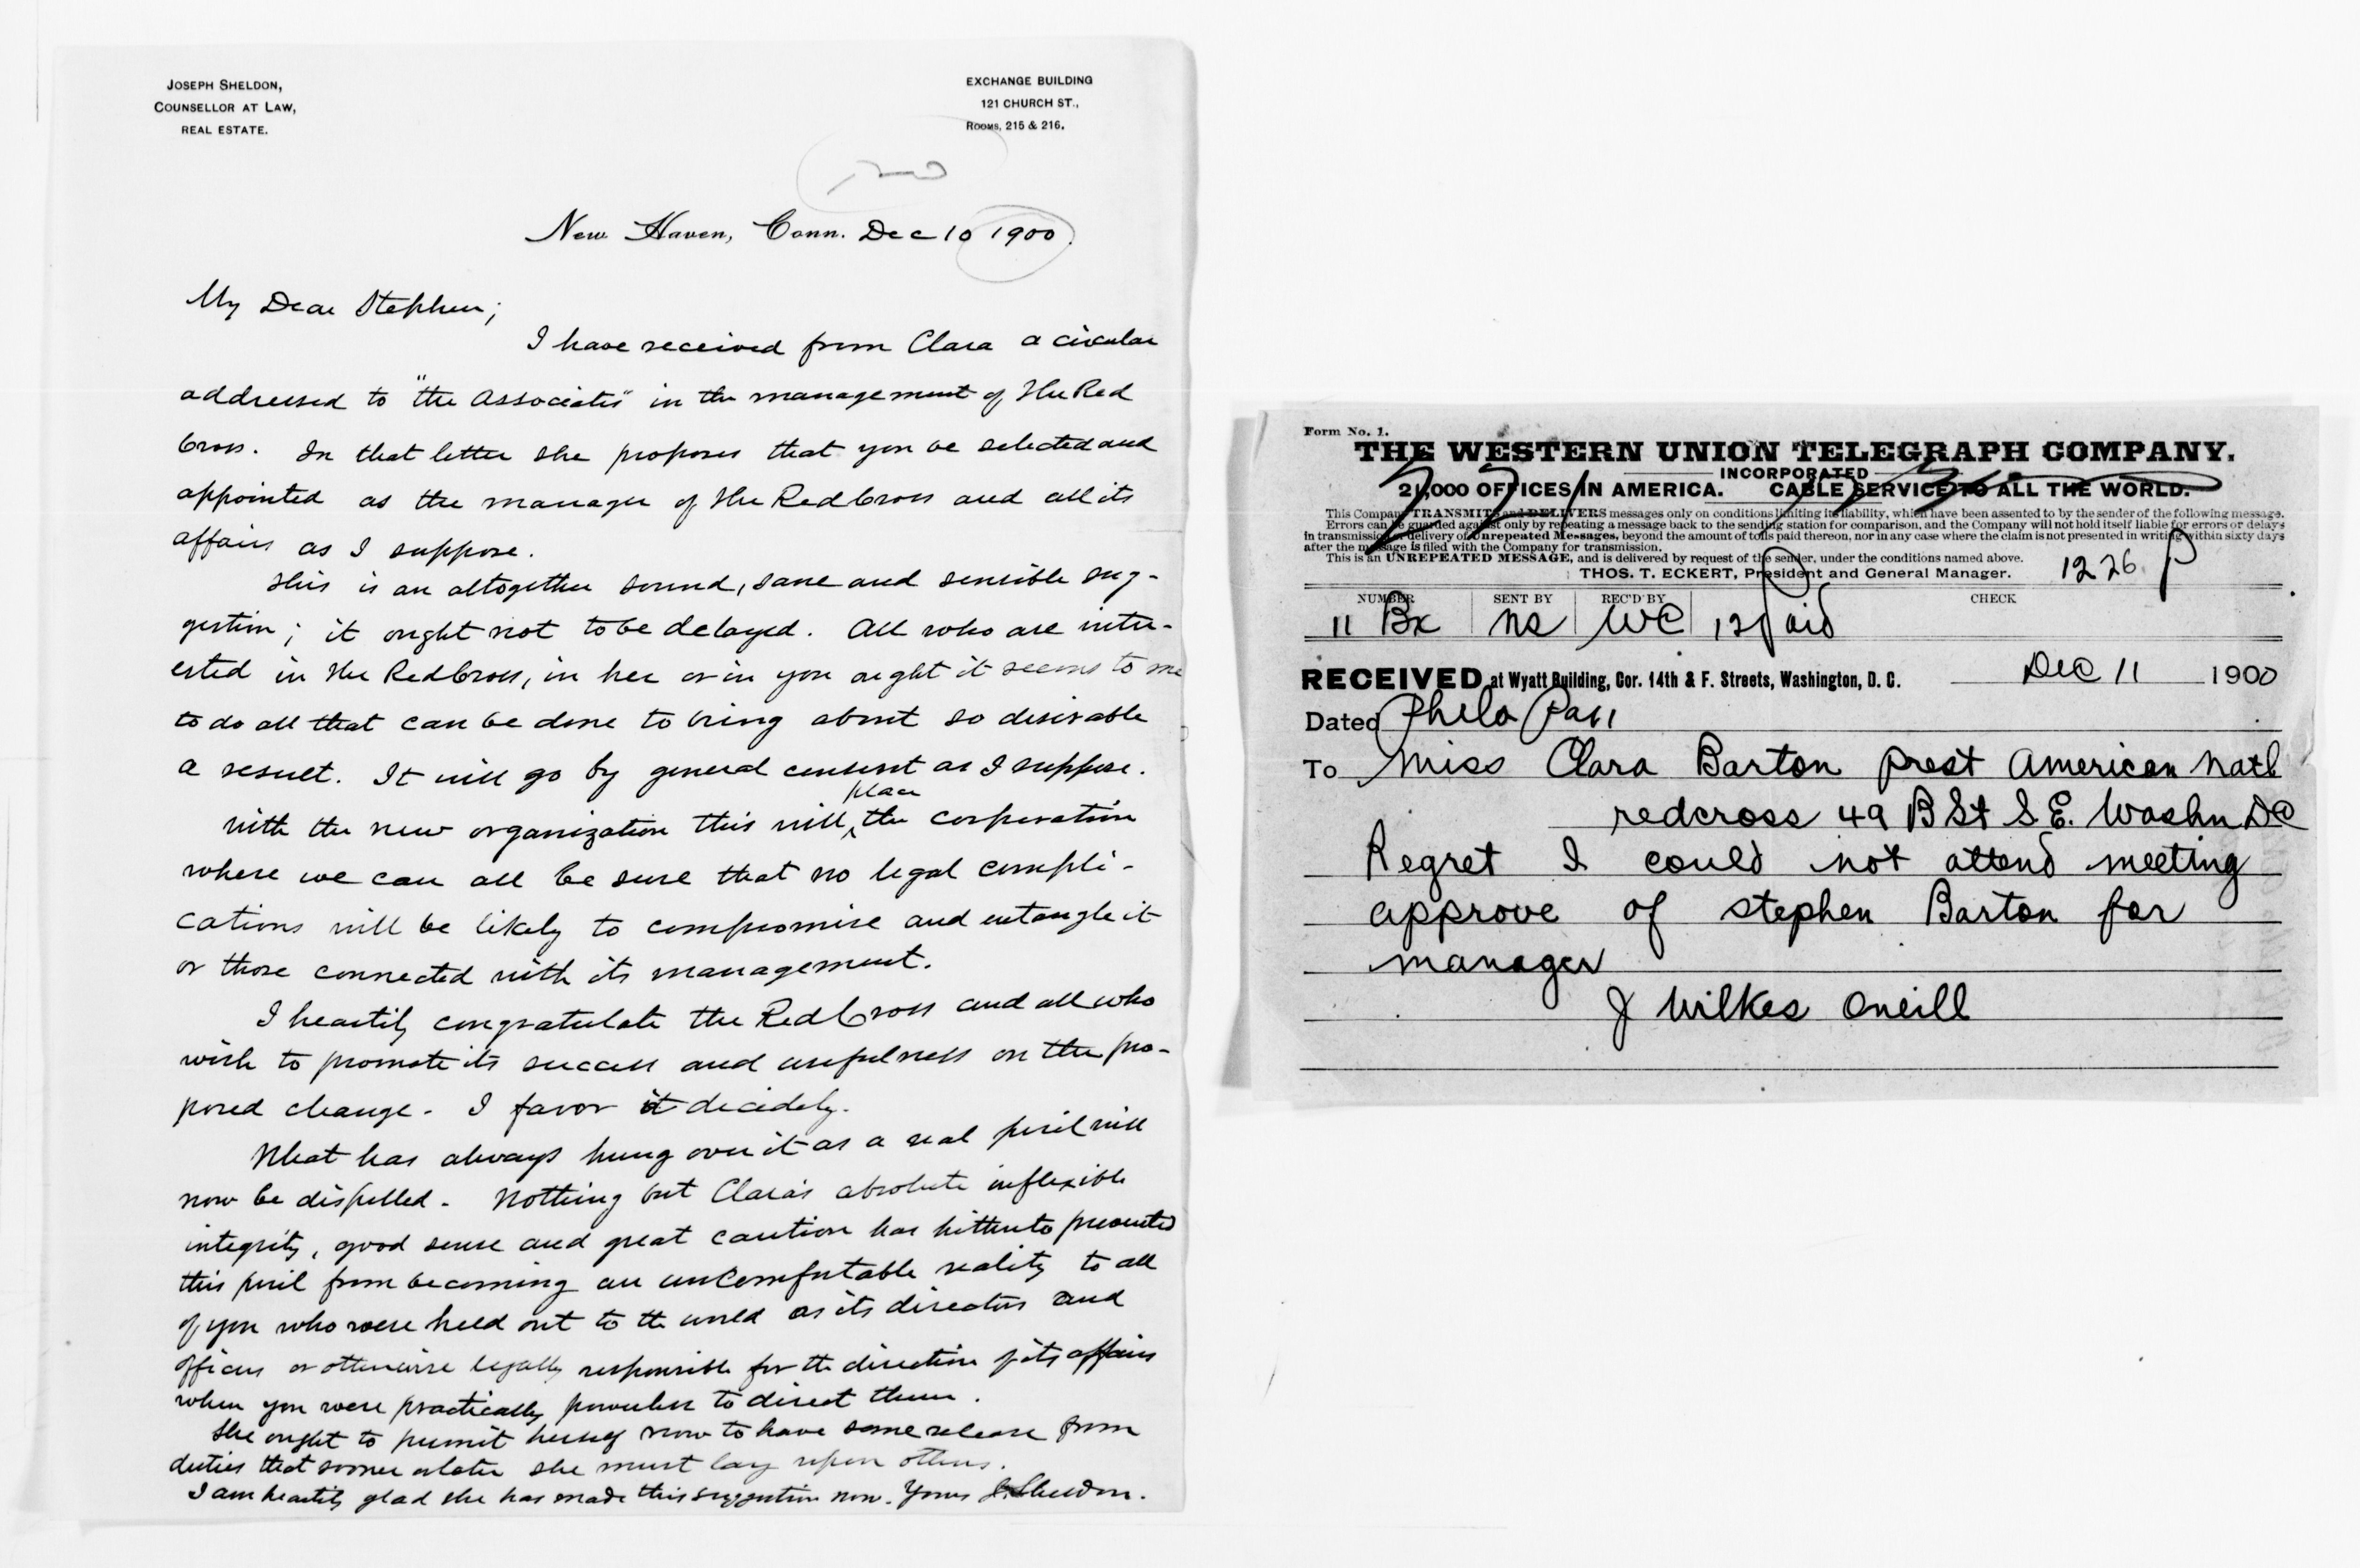 JOSEPH SHELDON,
COUNSELLOR AT LAW,
REAL ESTATE.
EXCHANGE BUILDING
121 CHURCH ST.,
ROOMS, 215 & 216.
New Haven, Conn. Dec 10 1900
My Dear Stephen;
I have received from Clara a circular
addressed to "the Associates" in the management of the Red
Cross. In that letter she proposes that you be selected and
appointed as the manager of the Red Cross and all its
affairs as I suppose.
This is an altogether sound, sane and sensible sug-
gestion; it ought not to be delayed. All who are inter-
ested in the Red Cross, in her or in you ought it seems to me
to do all that can be done to bring about so desirable
a result. It will go by general consent as I suppose.
With the new organization this will place the corporation
where we can all be sure that no legal compli-
cations will be likely to compromise and entangle it
or those connected with its management.
I heartily congratulate the Red Cross and all who
wish to promote its success and usefulness on the pro-
posed change. I favor it decidedly.
What has always hung over it as a real peril will
now be dispelled. Nothing but Clara's absolute inflexible
integrity, good sense and great caution has hitherto prevented
this peril from becoming an uncomfortable reality to all
of you who were held out to the world as its directors and
officers or otherwise legally responsible for the direction of its affairs
when you were practically powerless to direct them.
She ought to permit herself now to have some release from
duties that sooner or later she must lay upon others.
I am heartily glad she has made this suggestion now. Yours J. Sheldon.
Form No. 1.
THE WESTERN UNION TELEGRAPH COMPANY.
INCORPORATED
21,000 OFFICES IN AMERICA. CABLE SERVICE TO ALL THE WORLD.
This Company TRANSMITS and DELIVERS messages only on conditions limiting its liability, which have been assented to by the sender of the following message.
Errors can be guarded against only by repeating a message back to the sending station for comparison, and the Company will not hold itself liable for errors or delays
in transmission or delivery of Unrepeated Messages, beyond the amount of tolls paid thereon, nor in any case where the claim is not presented in writing within sixty days
after the message is filed with the Company for transmission.
This is an UNREPEATED MESSAGE, and is delivered by request of the sender, under the conditions named above.
THOS. T. ECKERT, President and General Manager. 12 26 P
NUMBER SENT BY REC'D BY CHECK
11 Bx ns WC 12 Paid
RECEIVED at Wyatt Building, Cor. 14th & F. Streets, Washington, D. C. Dec 11 1900
Dated Phila Pa 11
To Miss Clara Barton prest American natl
redcross 49 B St S.E. Washn DC
Regret I could not attend meeting
approve of stephen Barton for
manager
J Wilkes Oneill